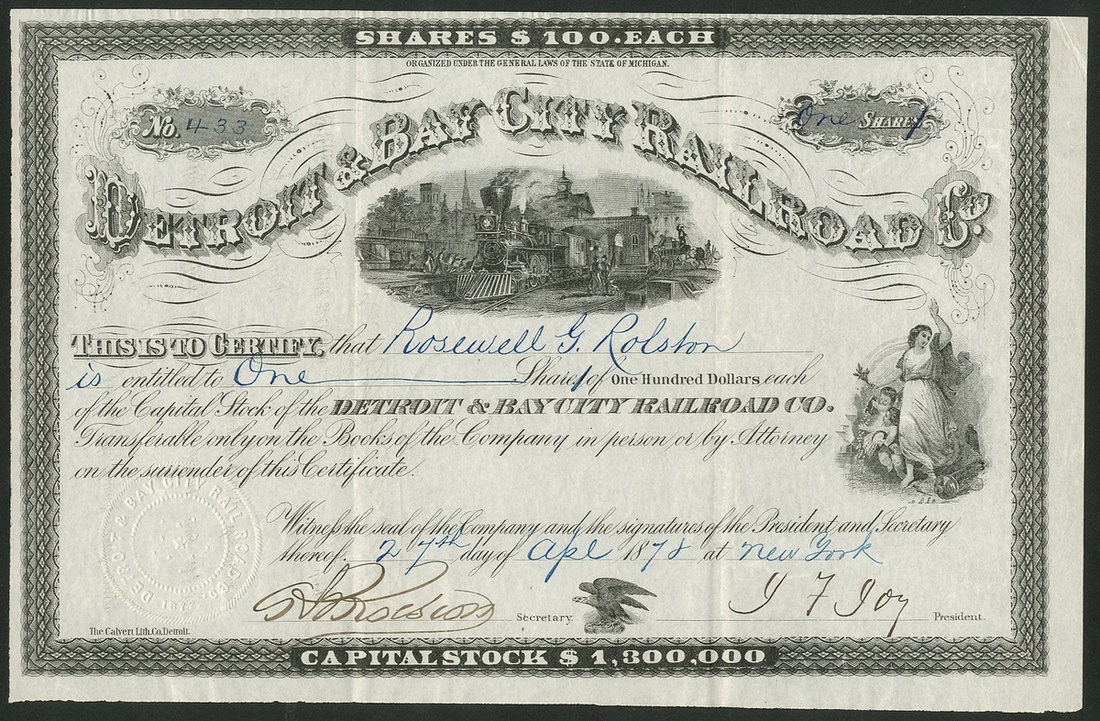 SHARES $ 100. EACH
ORGANIZED UNDER THE GENERAL LAWS OF THE STATE OF MICHIGAN.
No. 433
One SHARES
DETROIT & BAY CITY RAILROAD Co.
THIS IS TO CERTIFY, that Rosewell G. Rolston
is entitled to One Share of One Hundred Dollars each
of the Capital Stock of the DETROIT & BAY CITY RAILROAD CO.
Transferable only on the Books of the Company in person or by Attorney
on the surrender of this Certificate.
Witness the seal of the Company and the signatures of the President and Secretary
thereof. 27th day of Apl 1878 at New York
Secretary.
J F Joy President.
DETROIT & BAY CITY RAIL ROAD CO.
1872
The Calvert Lith. Co. Detroit.
CAPITAL STOCK $ 1,300,000